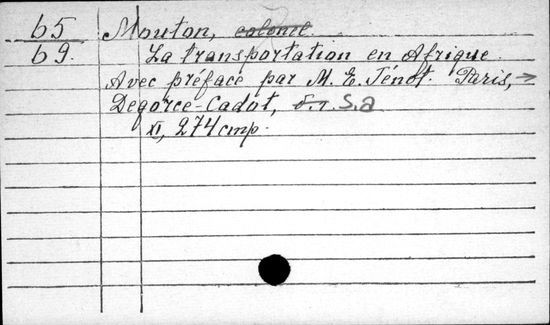 65 Mouton, colonel
69. La transportation en Afrique.
Avec préface par M. E. Ténot. Paris, →
Degorce-Cadot, s.a
XI, 274 cmp.